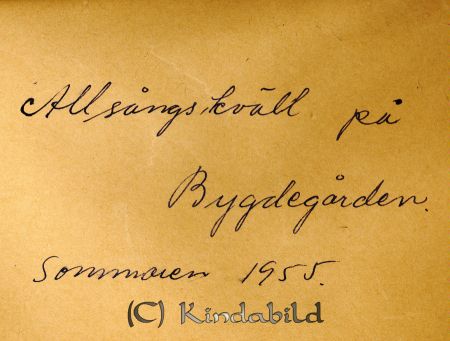 Allsångskväll på
Bygdegården.
Sommaren 1955.
(C) Kindabild